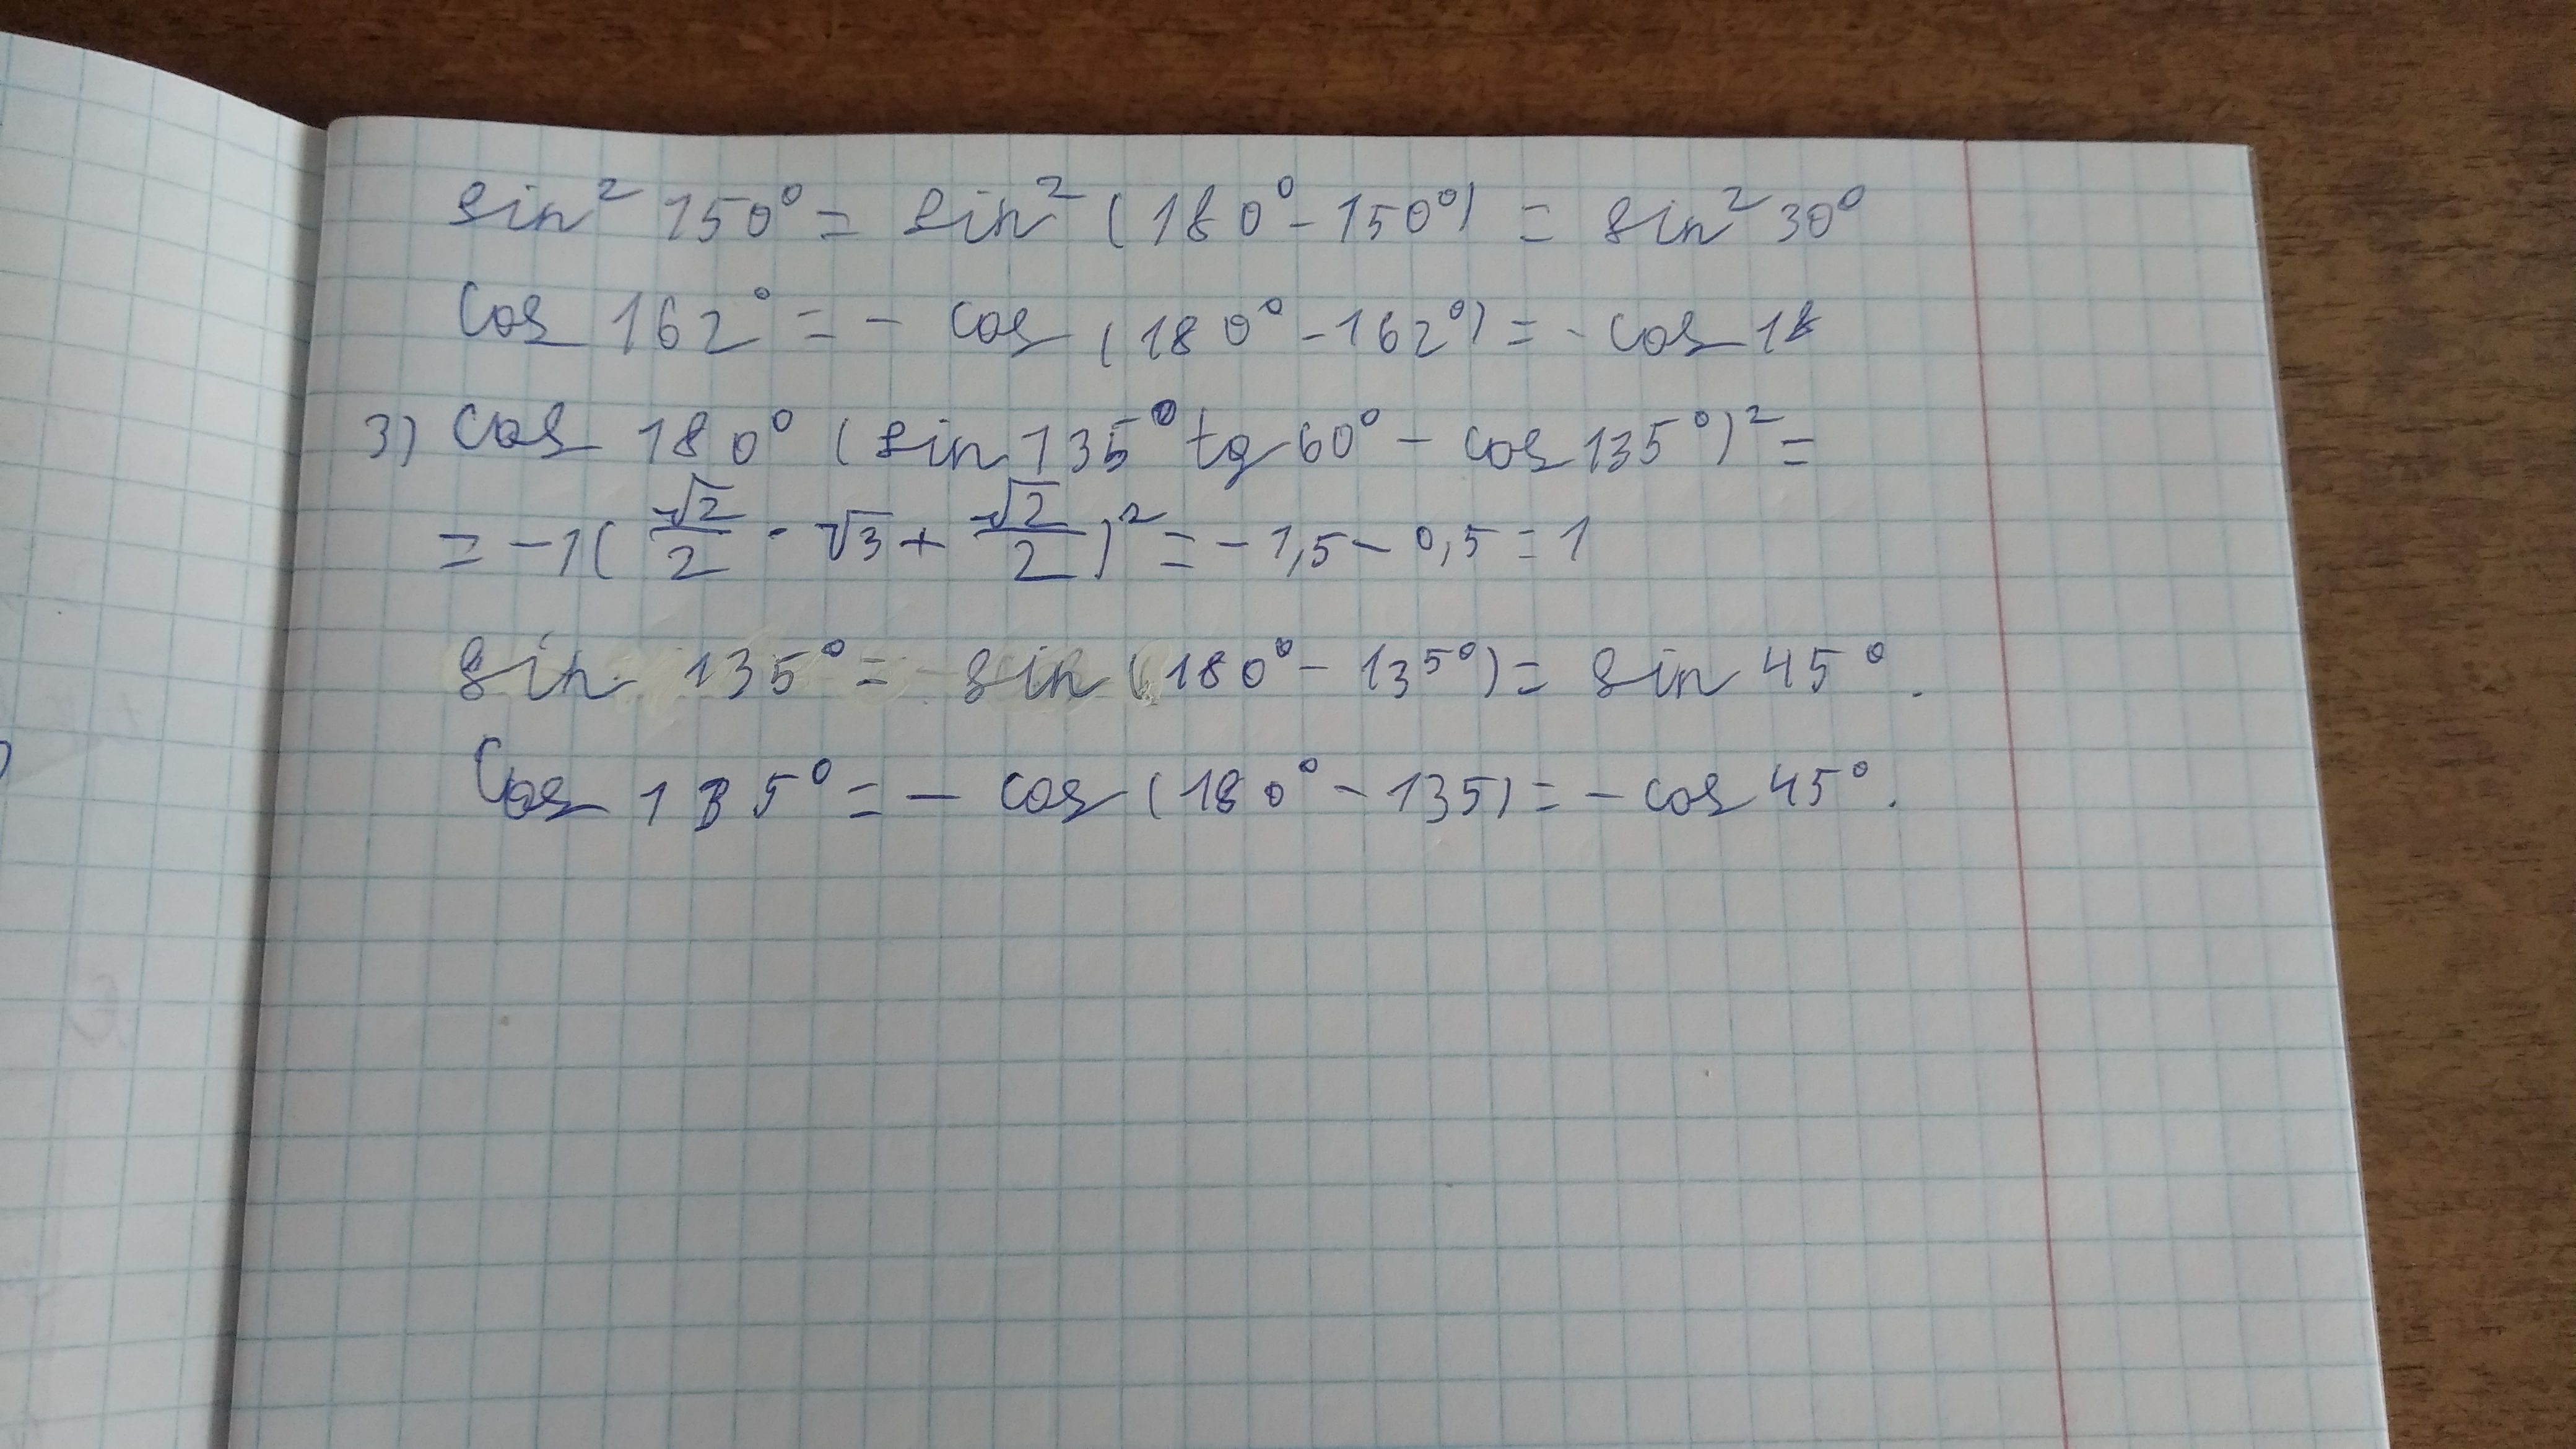 sin² 150° = sin² (180° - 150°) = sin² 30°
cos 162° = - cos (180° - 162°) = - cos 18
3) cos 180° (sin 135° tg 60° - cos 135°)² =
= -1 ( √2/2 · √3 + √2/2 )² = - 1,5 - 0,5 = 1
sin 135° = sin (180° - 135°) = sin 45°.
Cos 135° = - cos (180° - 135) = - cos 45°.